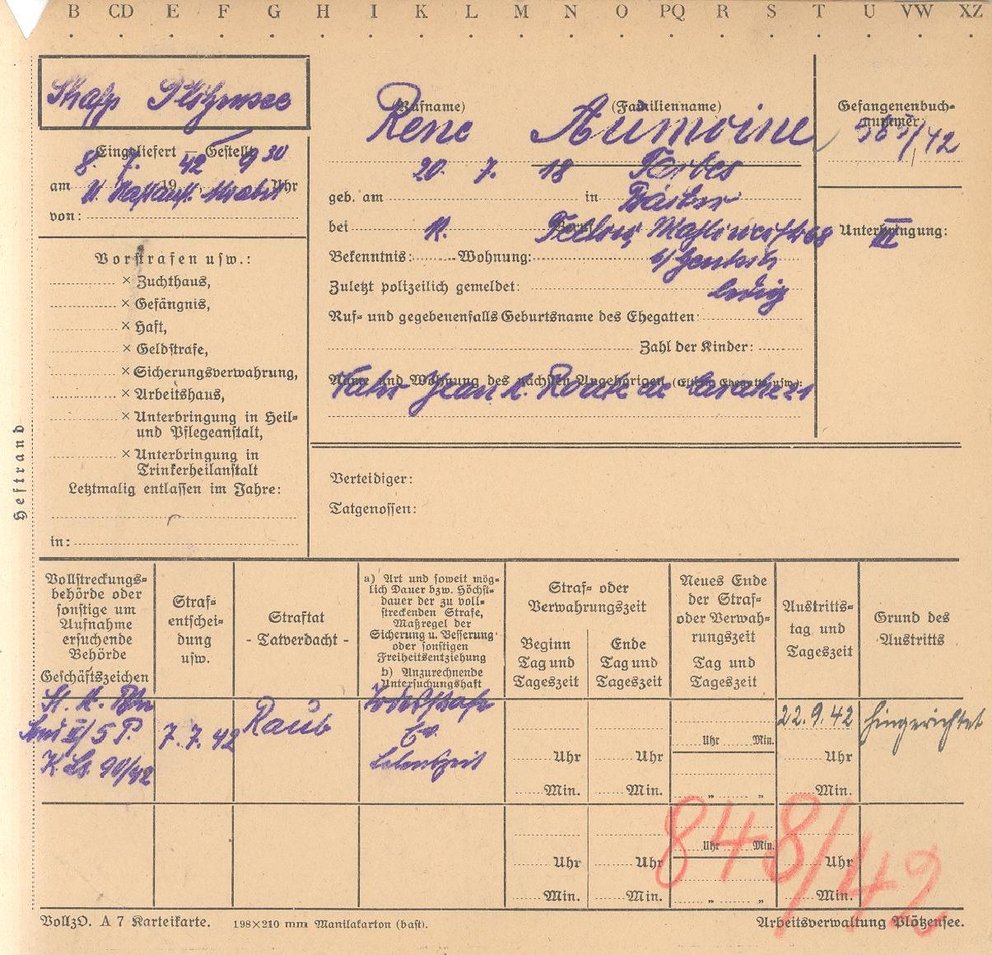 B CD E F G H I K L M N O PQ R S T U VW XZ
Plötzensee
Eingeliefert — Gestellt
8. 7. 42 9 30
am 19 Uhr
von:
Vorstrafen usw.:
× Zuchthaus,
× Gefängnis,
× Haft,
× Geldstrafe,
× Sicherungsverwahrung,
× Arbeitshaus,
× Unterbringung in Heil-
und Pflegeanstalt,
× Unterbringung in
Trinkerheilanstalt
Letztmalig entlassen im Jahre:
in:
Heftrand
(Rufname) (Familienname)
Rene Aumoine
20. 7. 18
geb. am in
bei
Bekenntnis: Wohnung:
Zuletzt polizeilich gemeldet:
ledig
Ruf- und gegebenenfalls Geburtsname des Ehegatten:
Zahl der Kinder:
Name und Wohnung des nächsten Angehörigen (Eltern, Ehegatte usw.):
Vater Jean A. Route de
Gefangenenbuch-
nummer
Unterbringung:
III
Verteidiger:
Tatgenossen:
Vollstreckungs-
behörde oder
sonstige um
Aufnahme
ersuchende
Behörde
Geschäftszeichen
Straf-
entschei-
dung
usw.
Straftat
- Tatverdacht -
a) Art und soweit mög-
lich Dauer bzw. Höchst-
dauer der zu voll-
streckenden Strafe,
Maßregel der
Sicherung u. Besserung
oder sonstigen
Freiheitsentziehung
b) Anzurechnende
Untersuchungshaft
Straf- oder
Verwahrungszeit
Beginn
Tag und
Tageszeit
Ende
Tag und
Tageszeit
Neues Ende
der Straf-
oder Verwah-
rungszeit
Tag und
Tageszeit
Austritts-
tag und
Tageszeit
Grund des
Austritts
St. A. Bln
5 P.
K Ls 90/42
7. 7. 42
Raub
Todesstrafe
Ev.
Lebenszeit
22.9.42 hingerichtet
Uhr Min.
Uhr Uhr Uhr
Min. Min. " " Min.
Uhr Min.
Uhr Uhr Uhr
Min. Min. " " Min.
848/42
VollzO. A 7 Karteikarte. 198×210 mm Manilakarton (bast). Arbeitsverwaltung Plötzensee.